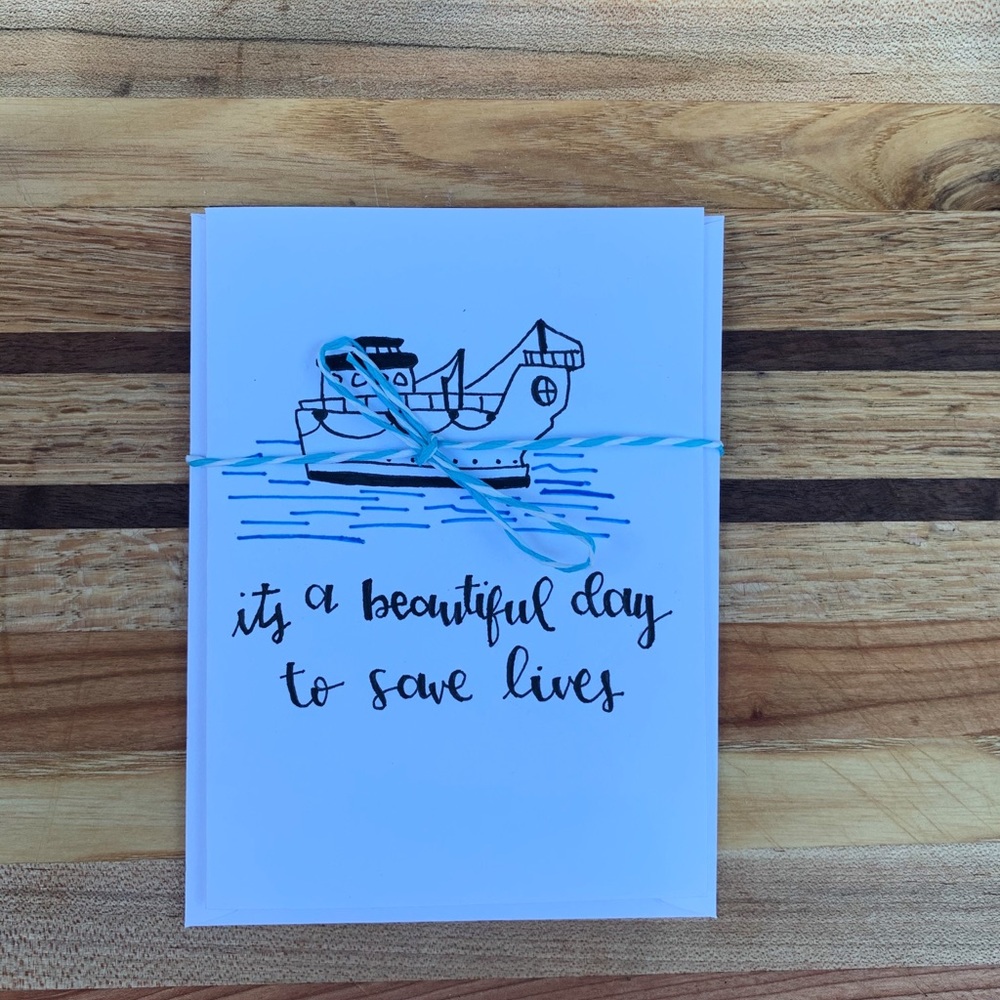 its a beautiful day
to save lives